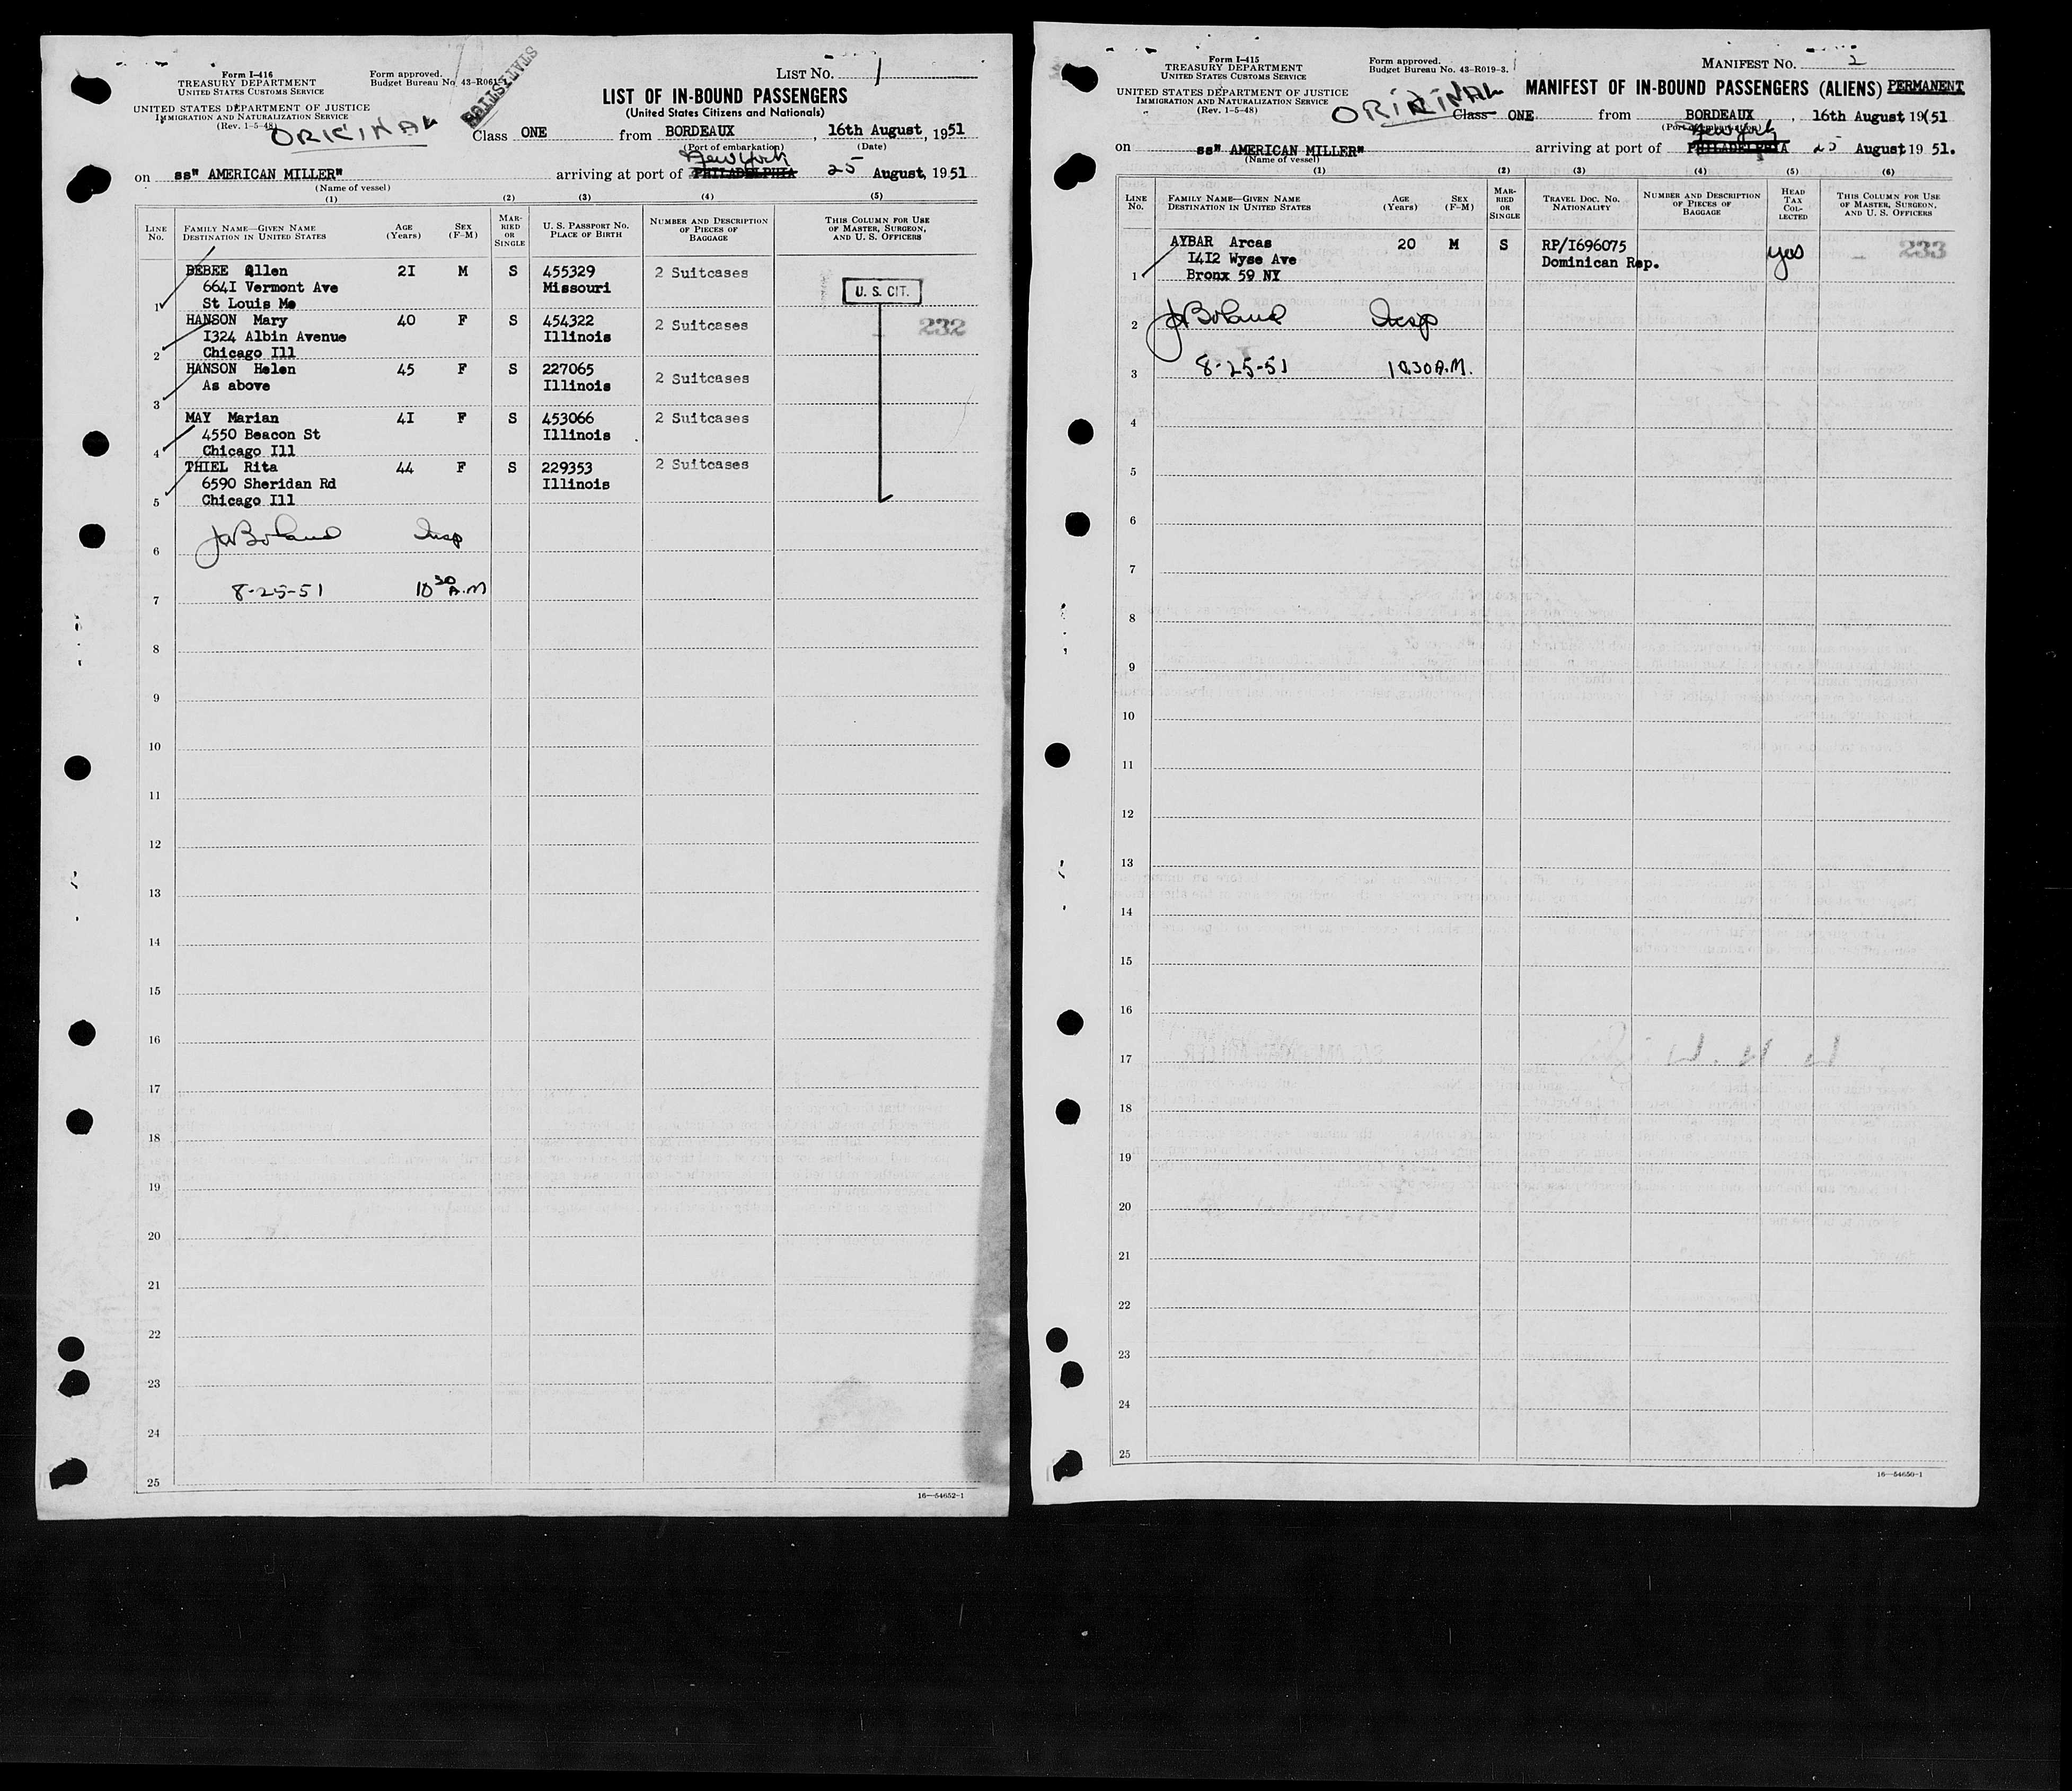 Form I-416
TREASURY DEPARTMENT
UNITED STATES CUSTOMS SERVICE
UNITED STATES DEPARTMENT OF JUSTICE
IMMIGRATION AND NATURALIZATION SERVICE
(Rev. 1-5-48)
Form approved.
Budget Bureau No. 43-R061
STATISTICS
ORIGINAL
LIST No. 1
LIST OF IN-BOUND PASSENGERS
(United States Citizens and Nationals)
Class ONE from BORDEAUX, 16th August, 1951
(Port of embarkation) (Date)
New York
on ss" AMERICAN MILLER" arriving at port of PHILADELPHIA 25 August, 1951
(Name of vessel)
(1) (2) (3) (4) (5)
LINE No. FAMILY NAME—GIVEN NAME DESTINATION IN UNITED STATES AGE (Years) SEX (F-M) MARRIED OR SINGLE U. S. PASSPORT No. PLACE OF BIRTH NUMBER AND DESCRIPTION OF PIECES OF BAGGAGE THIS COLUMN FOR USE OF MASTER, SURGEON, AND U. S. OFFICERS
BEBEE Allen 2I M S 455329 2 Suitcases
664I Vermont Ave Missouri U. S. CIT.
1 St Louis Mo
HANSON Mary 40 F S 454322 2 Suitcases 232
I324 Albin Avenue Illinois
2 Chicago Ill
HANSON Helen 45 F S 227065 2 Suitcases
As above Illinois
3
MAY Marian 4I F S 453066 2 Suitcases
4550 Beacon St Illinois
4 Chicago Ill
THIEL Rita 44 F S 229353 2 Suitcases
6590 Sheridan Rd Illinois
5 Chicago Ill
6 JABoland Insp
7 8-25-51 10 30 A.M
8
9
10
11
12
13
14
15
16
17
18
19
20
21
22
23
24
25
16—54652-1
Form I-415
TREASURY DEPARTMENT
UNITED STATES CUSTOMS SERVICE
UNITED STATES DEPARTMENT OF JUSTICE
IMMIGRATION AND NATURALIZATION SERVICE
(Rev. 1-5-48)
Form approved.
Budget Bureau No. 43-R019-3.
ORIGINAL
MANIFEST No. 2
MANIFEST OF IN-BOUND PASSENGERS (ALIENS) PERMANENT
Class ONE from BORDEAUX, 16th August 19(51
(Port of embarkation)
New York
on ss" AMERICAN MILLER" arriving at port of PHILADELPHIA 25 August 19 51.
(Name of vessel)
(1) (2) (3) (4) (5) (6)
LINE No. FAMILY NAME—GIVEN NAME DESTINATION IN UNITED STATES AGE (Years) SEX (F-M) MARRIED OR SINGLE TRAVEL DOC. No. NATIONALITY NUMBER AND DESCRIPTION OF PIECES OF BAGGAGE HEAD TAX COLLECTED THIS COLUMN FOR USE OF MASTER, SURGEON, AND U. S. OFFICERS
AYBAR Arcas 20 M S RP/I696075 yes 233
I4I2 Wyse Ave Dominican Rep.
1 Bronx 59 NY
2 JABoland Insp
3 8-25-51 10.30 A.M.
4
5
6
7
8
9
10
11
12
13
14
15
16
17
18
19
20
21
22
23
24
25
16—54650-1